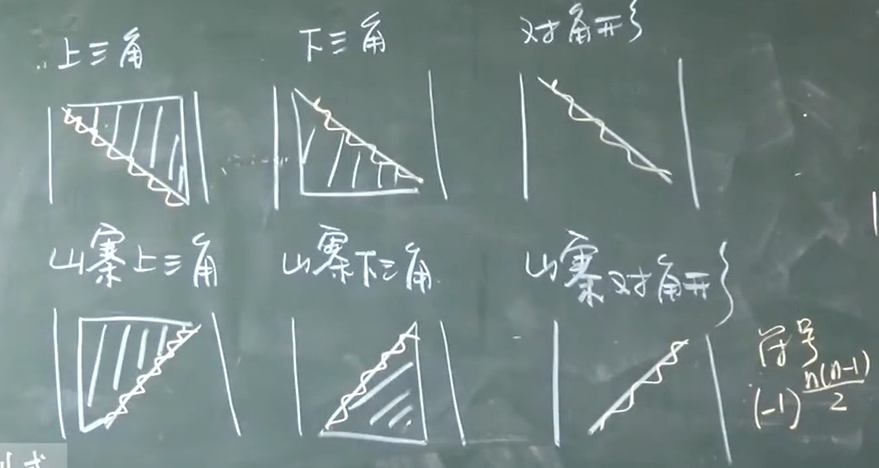 上三角 下三角 对角形
山寨上三角 山寨下三角 山寨对角形
符号
(-1)^{\frac{n(n-1)}{2}}